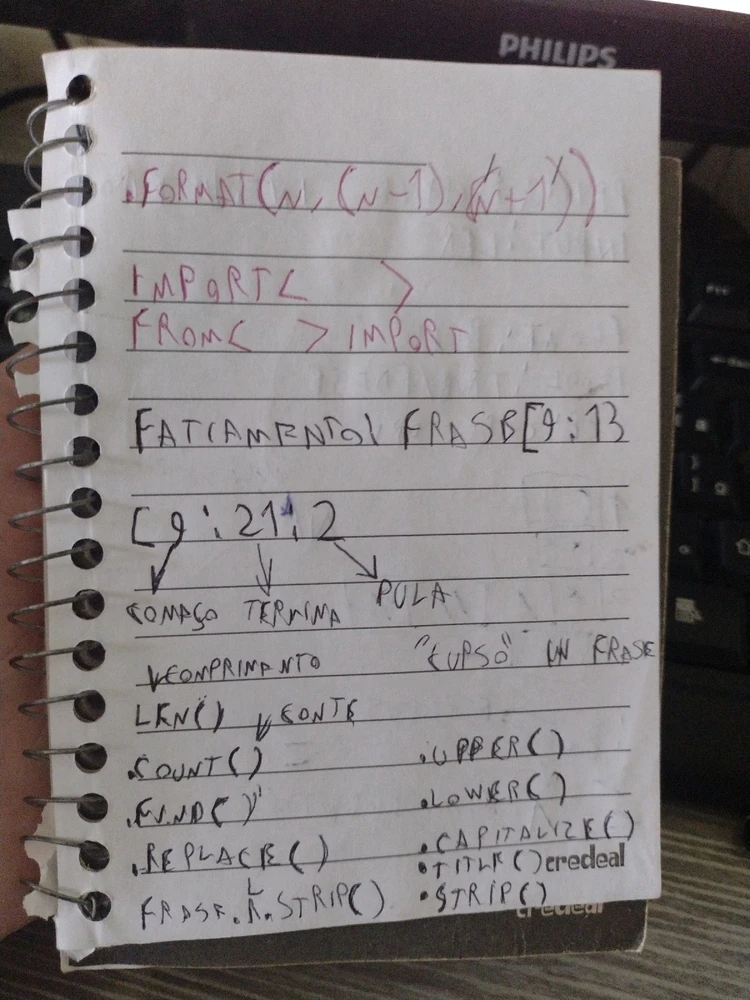 PHILIPS
.FORMAT(N, (N-1), (N+1))
IMPORT< >
FROM< > IMPORT
FATIAMENTO\ FRASE[9:13
[9:21:2
COMAÇO TERMINA PULA
COMPRIMANTO "CURSO" IN FRASE
LEN() CONTE
.COUNT() .UPPER()
.FIND() .LOWER()
.REPLACE() .CAPITALIZE()
.TITLE() credeal
FRASE.R.STRIP() .STRIP()
L
credeal